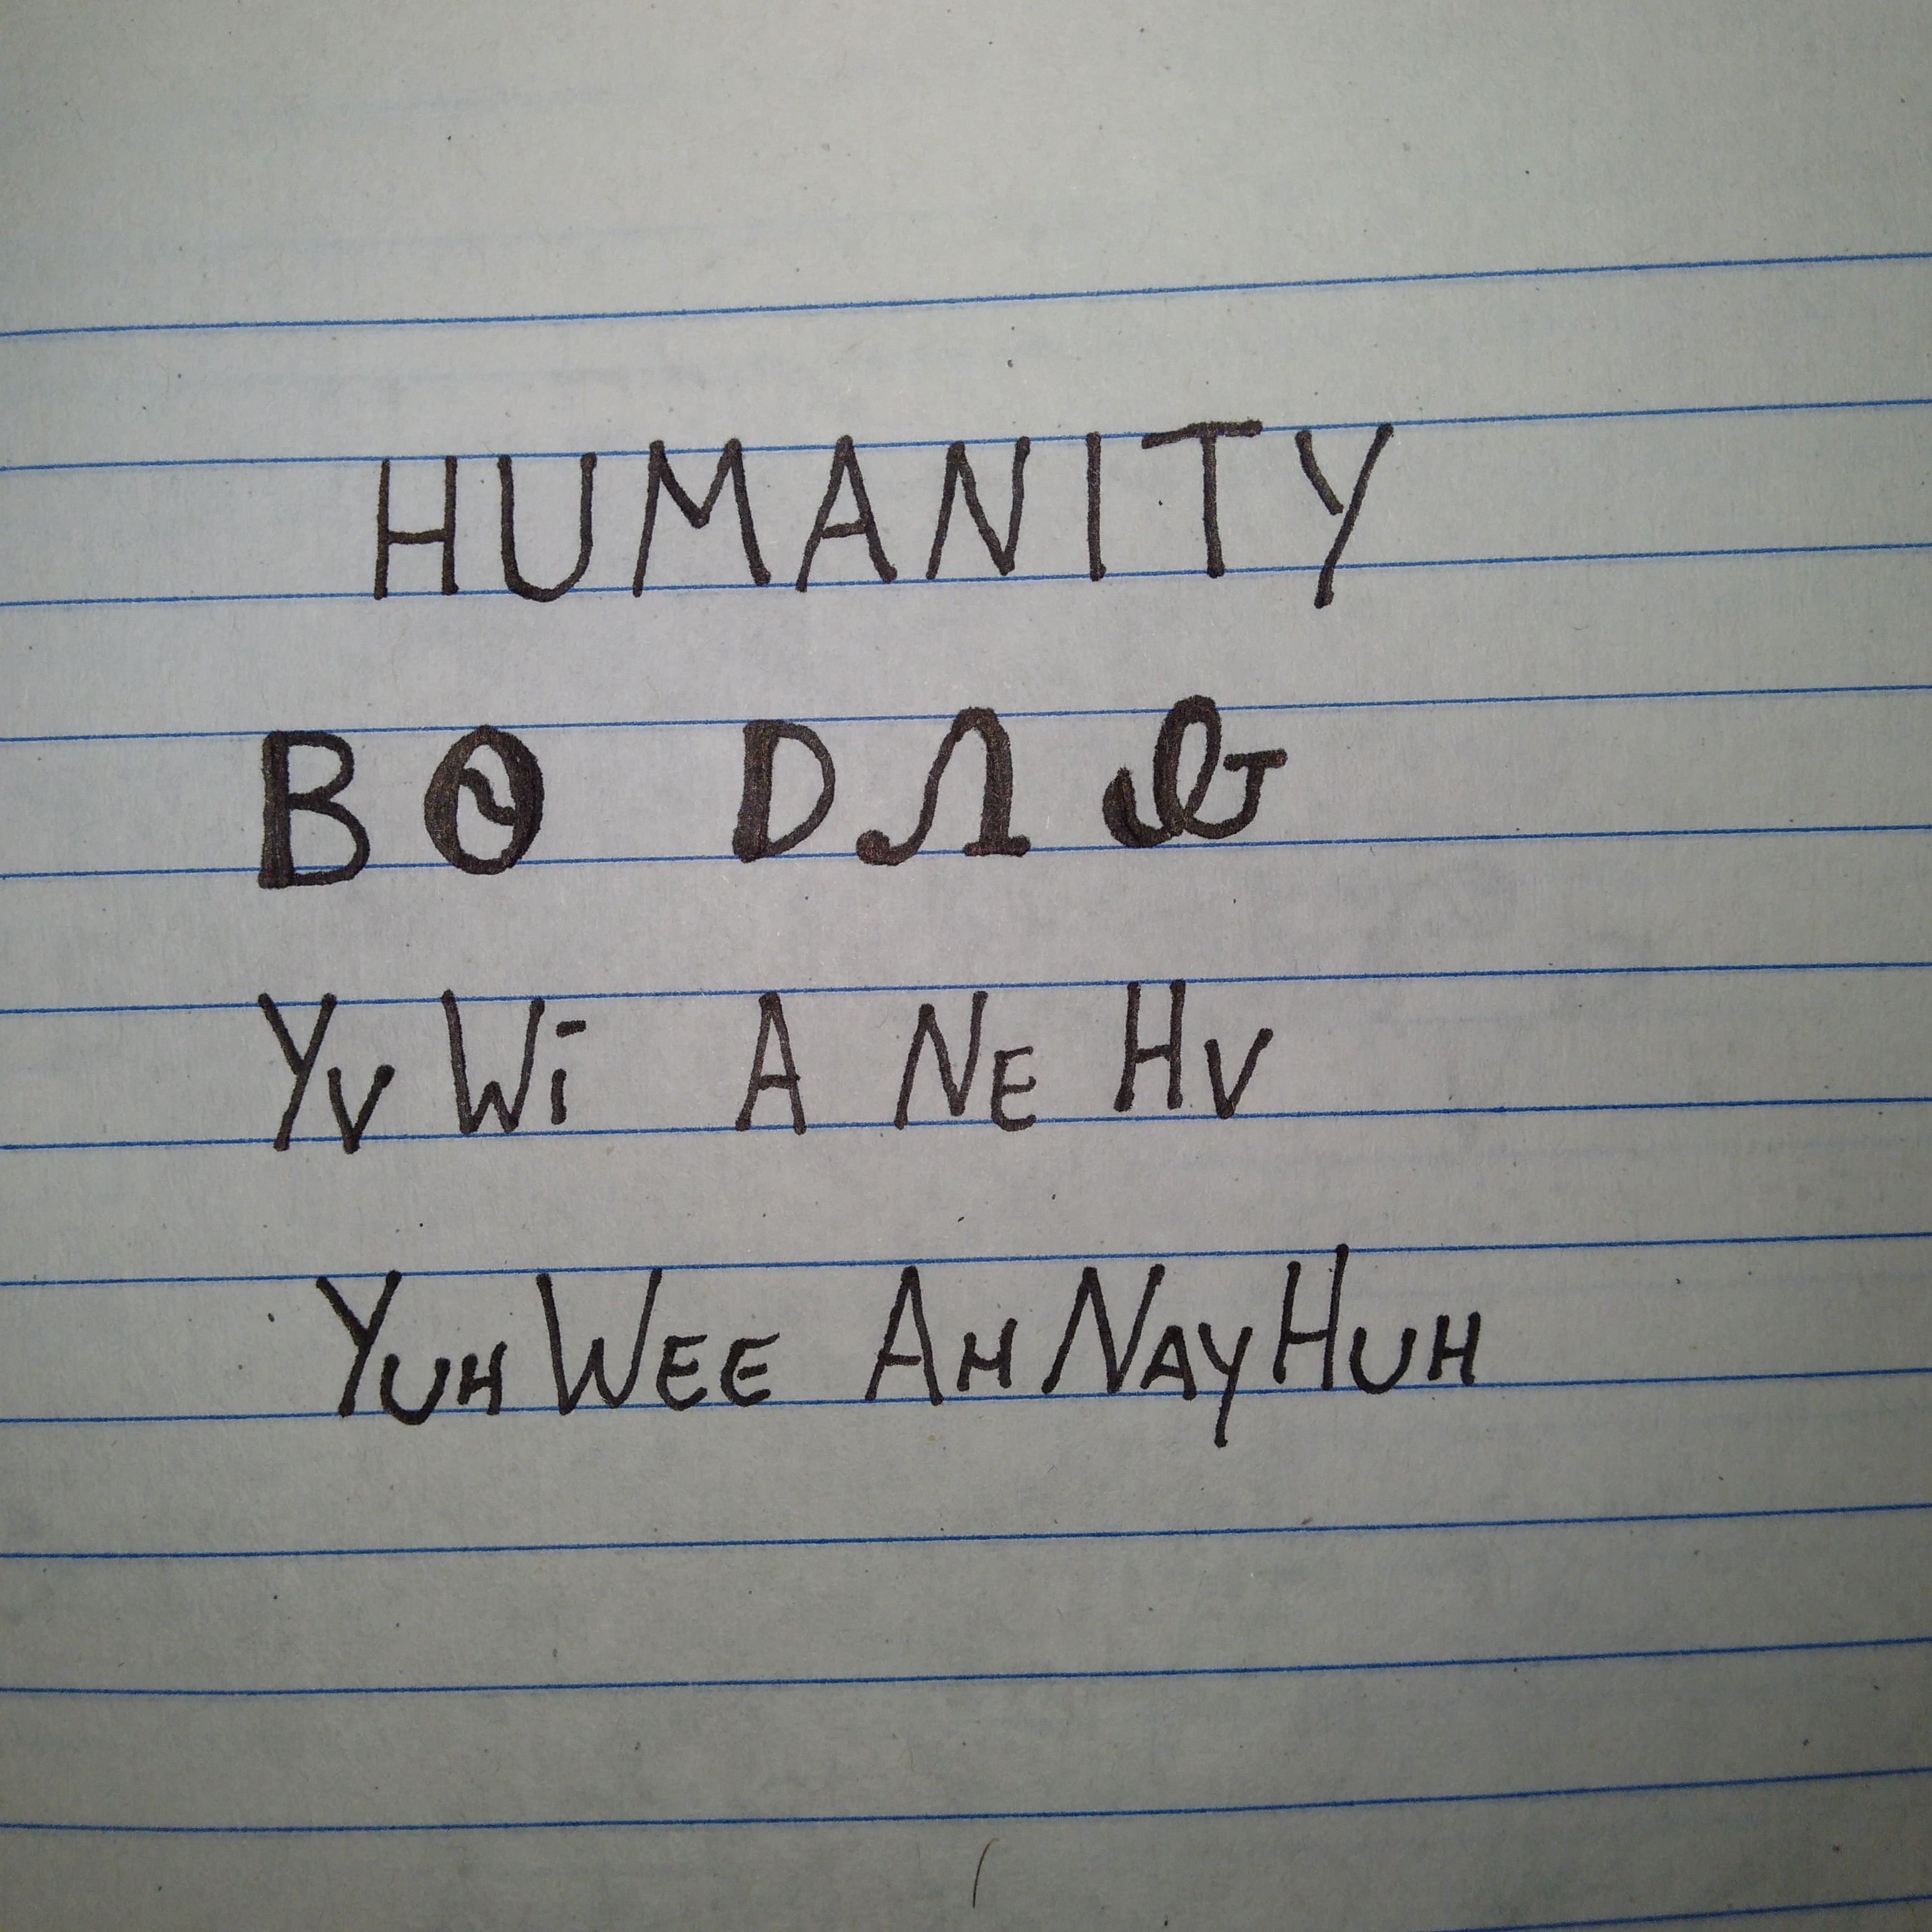 HUMANITY
ᏴᏫ ᎠᏁᎲ
Yv Wi A Ne Hv
YuhWee AhNayHuh